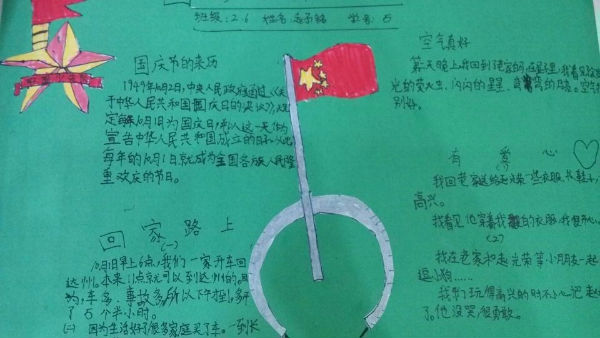 班级:2.6 姓名: 学号:5
国庆节的来历
1949年10月2日,中央人民政府通过《关
于中华人民共和国国庆日的决议》,规
定每年10月1日为国庆日,并以这一天作为
宣告中华人民共和国成立的日和从此
每年的10月1日就成为全国各族人民隆
重欢庆的节日。
回家路上
(一)
10月1日早上6点,我们一家开车回
达州。本来11点就可以到达州的,因
为,车多、事故多,所以下午到,多
了5个半小时。
(二) 因为生活好了很多家庭买了车。一到长
空气真好
第二天晚上我回到老家的
光的萤火虫、闪闪的星星、弯弯的月亮。空气
别好。
有爱心
我回老家送给赵光荣一些衣服、
高兴。
我看见他穿着我的衣服,我很开心。
(2)
我在老家和赵光荣等小朋友一起
逗小狗……
我们玩得高兴的时不小心把
了。他没哭,很勇敢。